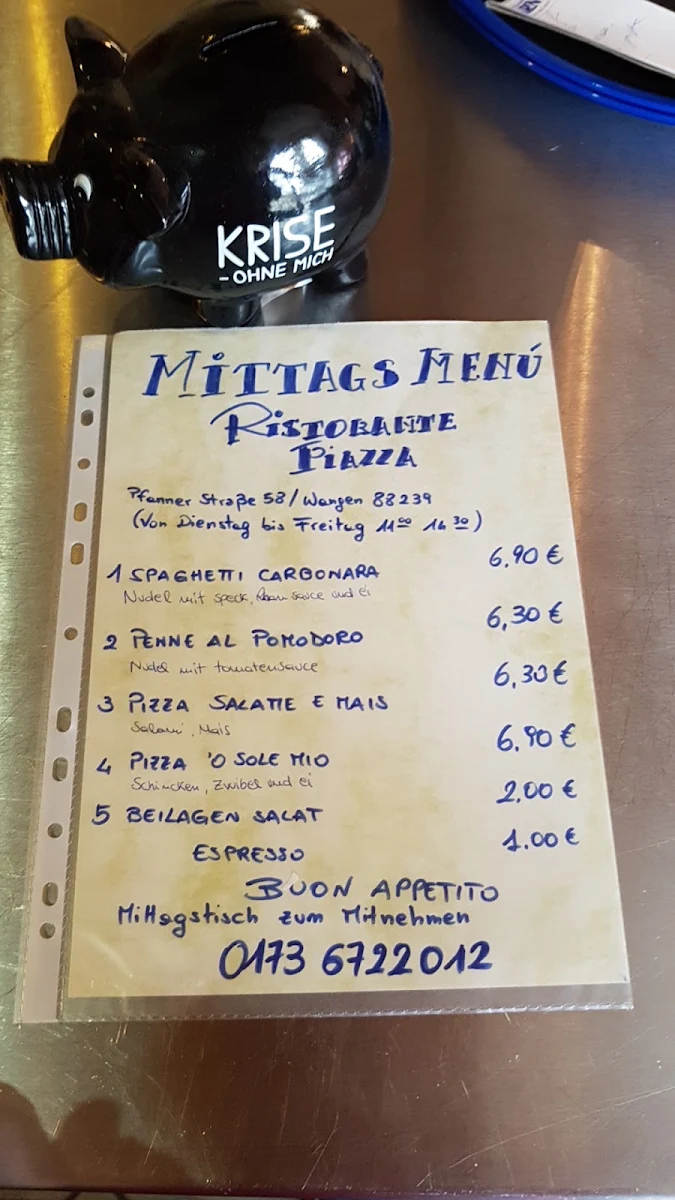 KRISE
- OHNE MICH
MITTAGS MENÚ
RISTORANTE
PIAZZA
Pfanner Straße 58 / Wangen 88239
(Von Dienstag bis Freitag 11 00 14 30)
1 SPAGHETTI CARBONARA 6,90 €
Nudel mit speck, Ramsauce und ei
2 PENNE AL POMODORO 6,30 €
Nudel mit tomatensauce
3 PIZZA SALAME E MAIS 6,30 €
Salami, Mais
4 PIZZA 'O SOLE MIO 6,90 €
Schincken, Zwibel und ei
5 BEILAGEN SALAT 2,00 €
ESPRESSO 1.00 €
BUON APPETITO
Mittagstisch zum Mitnehmen
0173 6722012